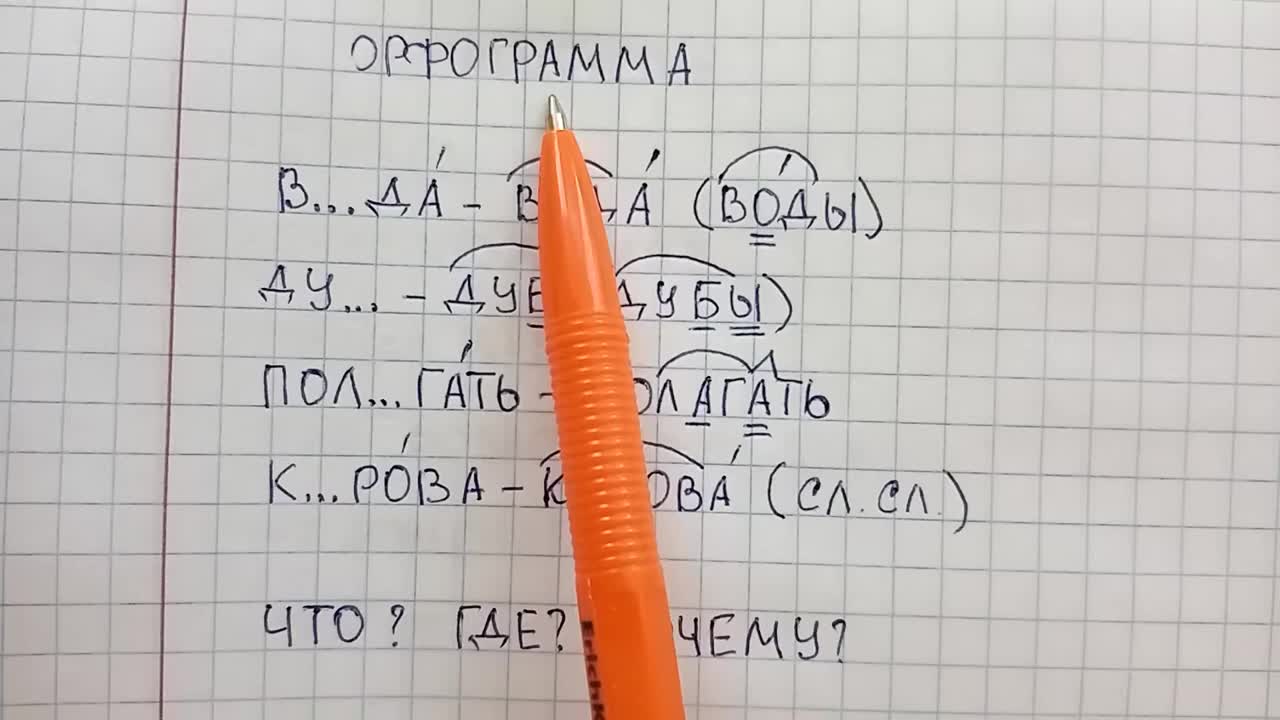 ОРФОГРАММА
В...ДА́ - ДА́ (ВО́ДЫ)
ДУ... - ДУБ ДУБЫ)
ПОЛ...ГА́ТЬ - ОЛАГАТЬ
К...РО́ВА - К ОВА́ (СЛ. СЛ.)
ЧТО? ГДЕ? ЧЕМУ?
Erich